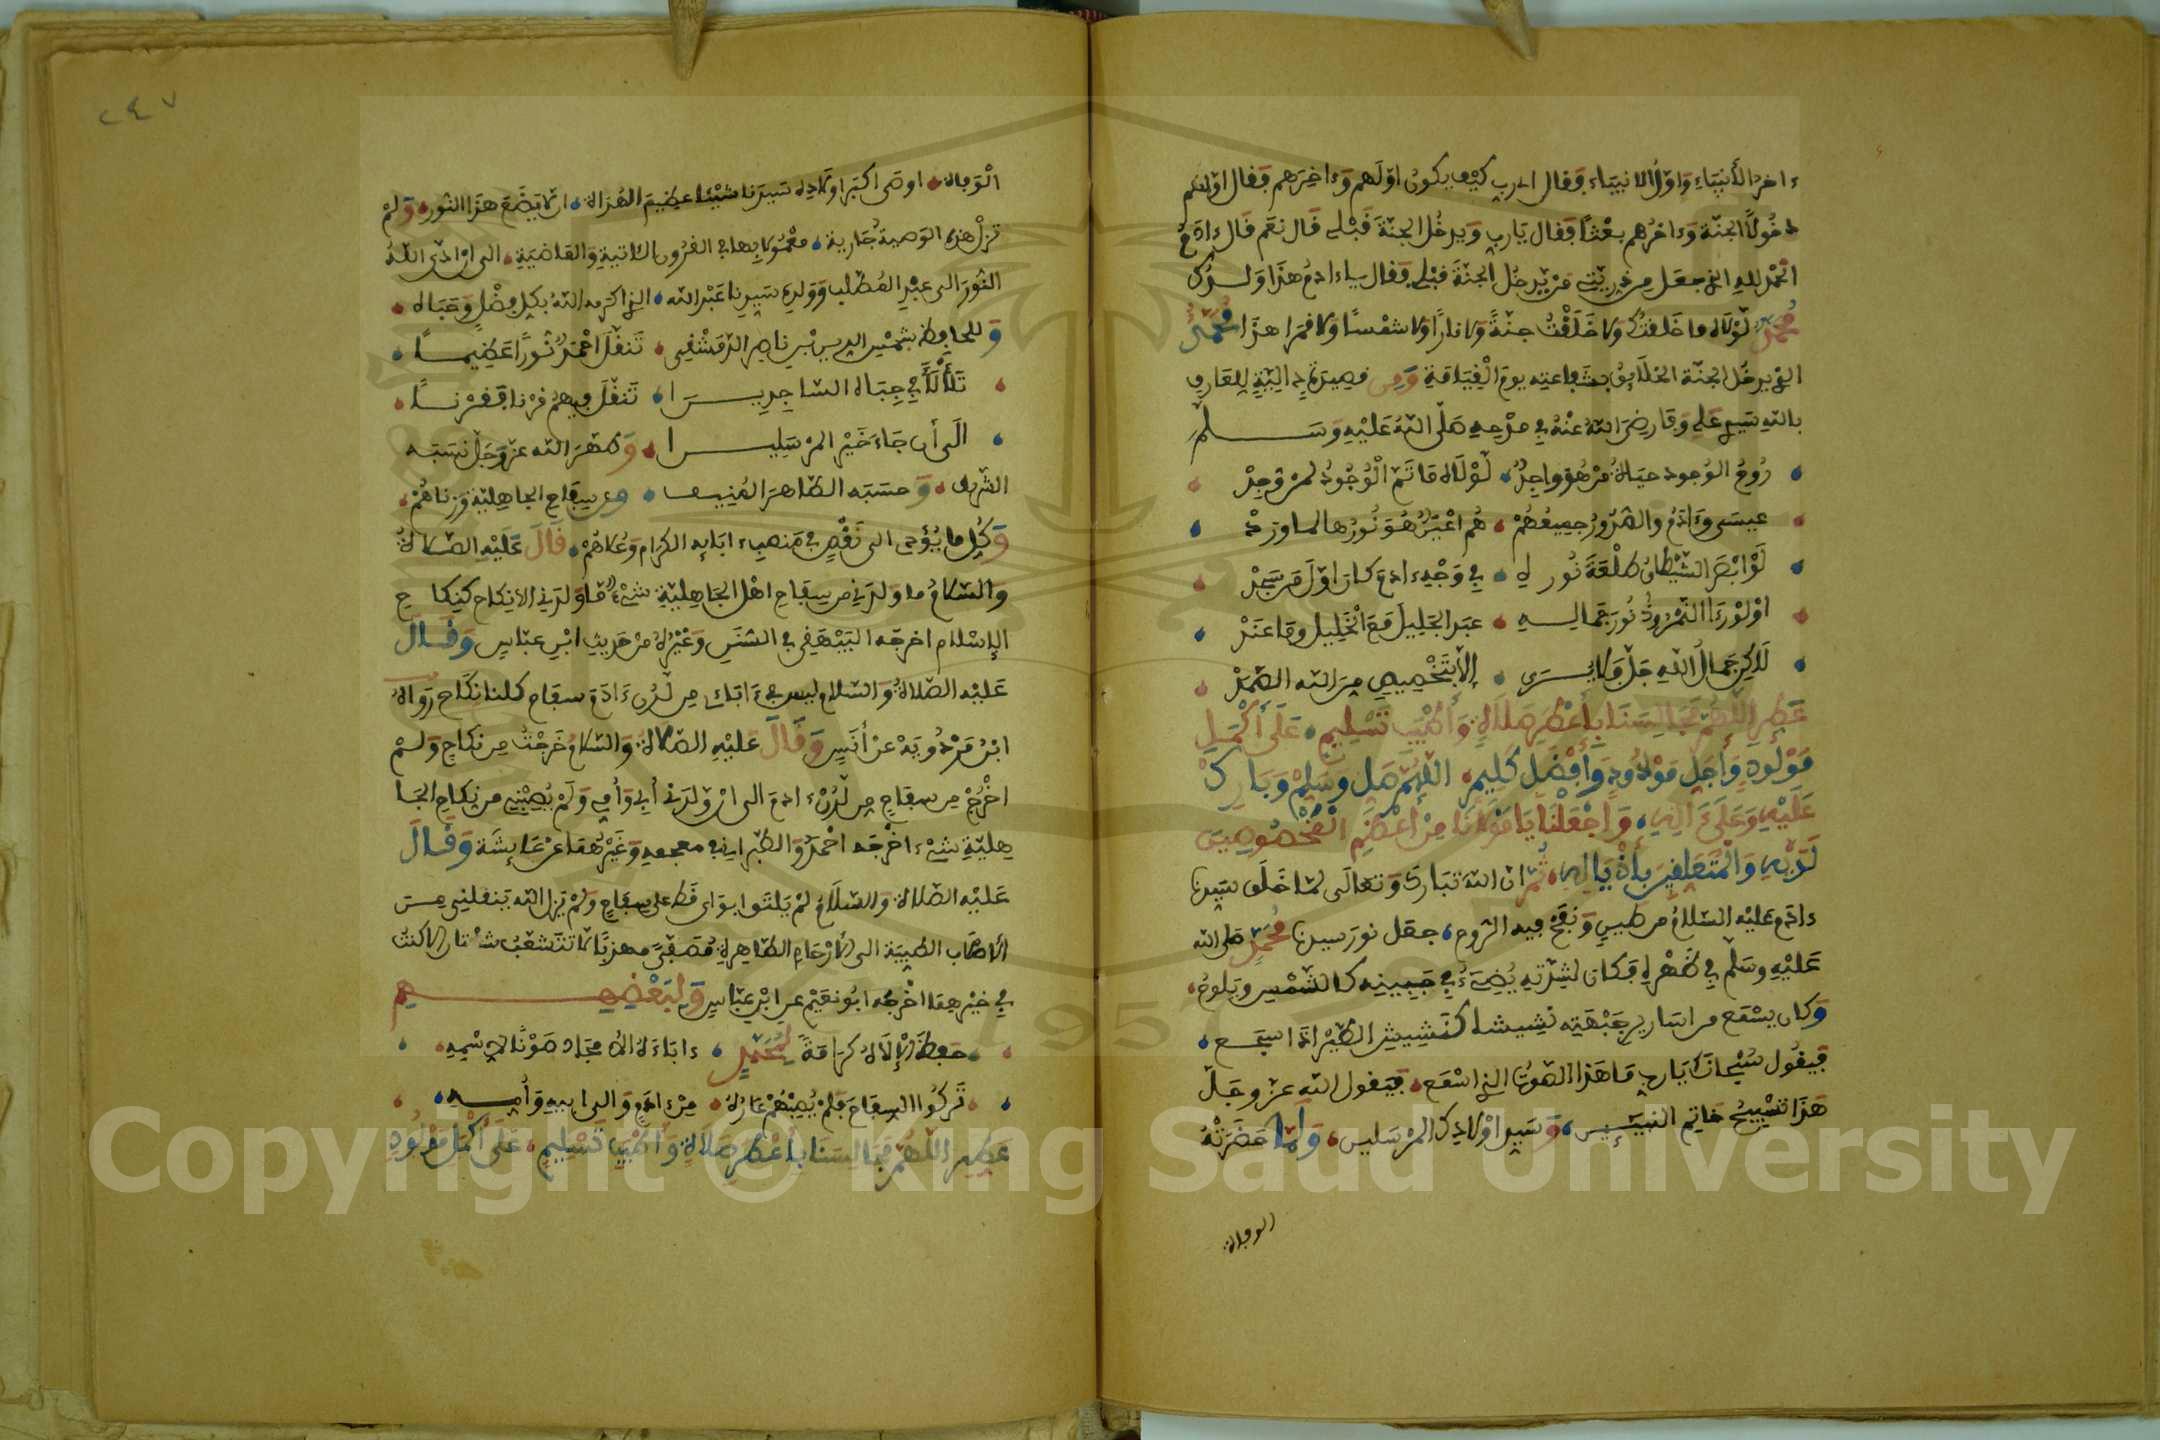 ءاخر الأنبياء وأول الانبياء فقال ادم رب كيف يكون اولهم وءاخرهم فقال اولهم
دخولا الجنة وءاخرهم بعثا فقال يارب ويدخل الجنة قبلي قال نعم قال ءادم
الحمد لله الذي جعل من ذريتي من يدخل الجنة قبلي فقال ياءادم هذا ولدك
محمد لولاه ما خلقتك ولا خلقت جنة ولا نارا ولا شمسا ولا قمرا هذا محمد
الذي يدخل الجنة الخلايق بشفاعته يوم القيامة ومن قصيدة دالية للعارف
بالله سيدي علي وفا رضي الله عنه في مدحه صلى الله عليه وسلم
روح الوجود حياة من هو واجد لولاه ما تم الوجود لمن وجد
عيسى وءادم والصدور جميعهم هم اعين هو نورها لما ورد
لو ابصر الشيطان طلعة نوره في وجه ءادم كان اول من سجد
او لو رءا النمرود نور جماله عبد الجليل مع الخليل وما عند
لكن جمال الله جل فلا يرى إلا بتخصيص من الله الصمد
عطر اللهم مجالسنا بأعطر صلاة وأطيب تسليم على أكمل
مولود وأجل مودود وأفضل كليم اللهم صل وسلم وبارك
عليه وعلى ءاله واجعلنا يا مولانا من أعظم المخصوصين
لديه والمتعلقين بأذياله ثم ان الله تبارك وتعالى لما خلق سيدنا
ءادم عليه السلام من طين ونفخ فيه الروح جعل نور سيدنا محمد صلى الله
عليه وسلم في ظهره فكان لشدته يضيء في جبينه كالشمس ويلوح
وكان يسمع من اسارير جبهته نشيشا كنشيش الطير اذا سبح
فيقول سبحانك يارب ما هذا الصوت الذي اسمع فيقول الله عز وجل
هذا تسبيح خاتم النبيئين وسيد اولادك المرسلين ولما حضرته
الوفاة
٢٤٧
الوفاة اوصى اكبر اولاده سيدنا شيثا عظيم الهداة ان لا يضع هذا النور ولم
تزل هذه الوصية جارية معمولا بها في القرون الاتية والماضية الى ان ادى الله
النور الى عبد المطلب وولده سيدنا عبد الله الذي اكرمه الله بكل فضل وحباه
وللحافظ شمس الدين بن ناصر الدمشقي تنقل احمد نورا عظيما
تلألأ في جباه الساجدينا تنقل فيهم قرنا فقرنا
الى أن جاء خير المرسلينا وطهر الله عز وجل نسبه
الشريف وحسبه الطاهر المنيف من سفاح الجاهلية وزناهم
وكل ما يؤدي الى نقص في منصب ءابايه الكرام وعلاهم قال عليه الصلاة
والسلام ما ولدني من سفاح اهل الجاهلية شيء ما ولدني الا نكاح كنكاح
الإسلام اخرجه البيهقي في السنن وغيره من حديث ابن عباس وقال
عليه الصلاة والسلام ليس في ءابائي من لدن ءادم سفاح كلنا نكاح رواه
ابن مردويه عن أنس وقال عليه الصلاة والسلام خرجت من نكاح ولم
اخرج من سفاح من لدن ءادم الى ان ولدني أبي وأمي ولم يصبني من نكاح الجا
هلية شيء اخرجه احمد والطبراني في معجمه وغيرهما عن عايشة وقال
عليه الصلاة والسلام لم يلتق ابواي قط على سفاح ولم يزل الله ينقلني من
الاصلاب الطيبة الى الارحام الطاهرة مصفى مهذبا لا تتشعب شعبتان الا كنت
في خيرهما اخرجه ابو نعيم عن ابن عباس ولبعضهم
حفظ الإلاه كرامة لمحمد ءاباءه الامجاد صونا لاسمه
تركوا السفاح فلم يصبهم عاره من ءادم والى ابيه وأمه
عطر اللهم مجالسنا بأعطر صلاة وأطيب تسليم على أكمل مولود
Copyright © King Saud University
1957